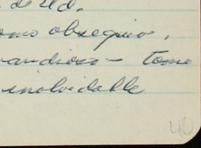 de Ud.
como obsequio,
grandioso - tome
inolvidable
40